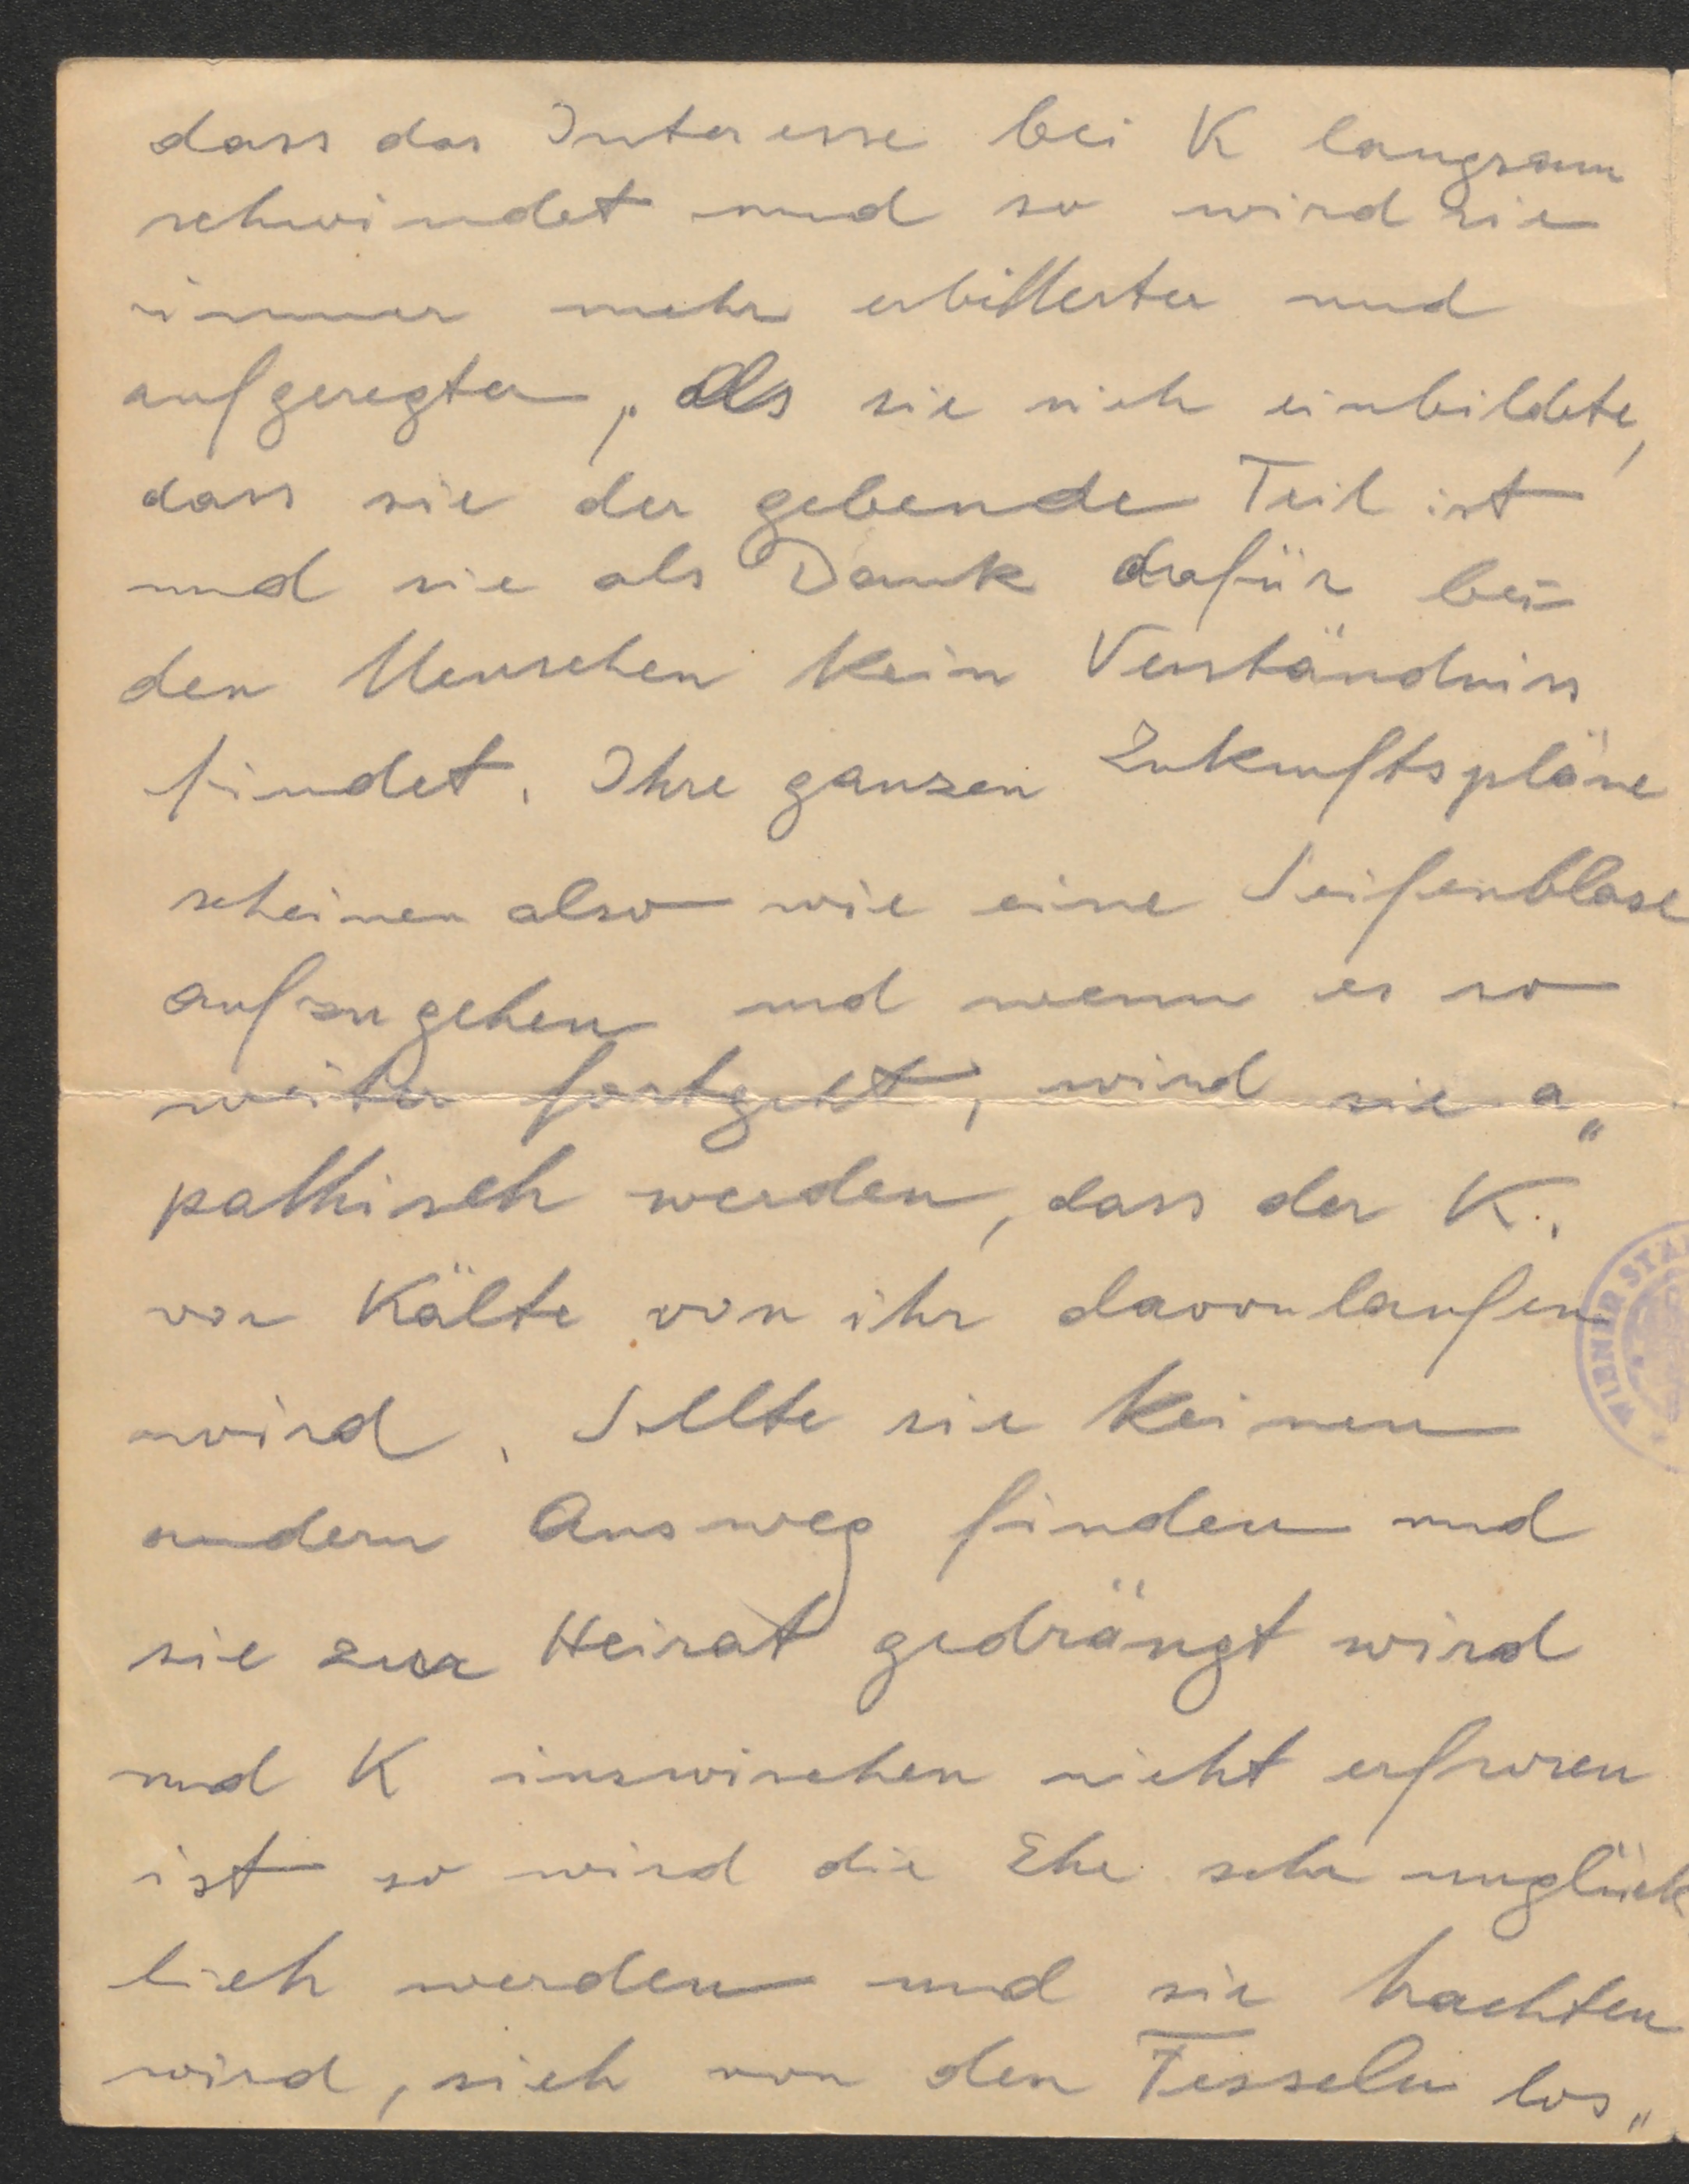 dass das Interesse bei K langsam
schwindet und so wird sie
immer mehr erbitterter und
aufgeregter, als sie sich einbildete,
dass sie der gebende Teil ist
und sie als Dank dafür bei
den Menschen kein Verständniss
findet. Ihre ganzen Zukunftspläne
scheinen also wie eine Seifenblase
aufzugehen und wenn es so
weiter fortgeht, wird sie a„
pathisch werden, dass der K.
vor Kälte von ihr davonlaufen
wird. Sollte sie keinen
andern Ausweg finden und
sie zur Heirat gedrängt wird
und K inzwischen nicht erfroren
ist so wird die Ehe sehr unglück
lich werden und sie trachten
wird, sich von den Fesseln los„
WIENER STA